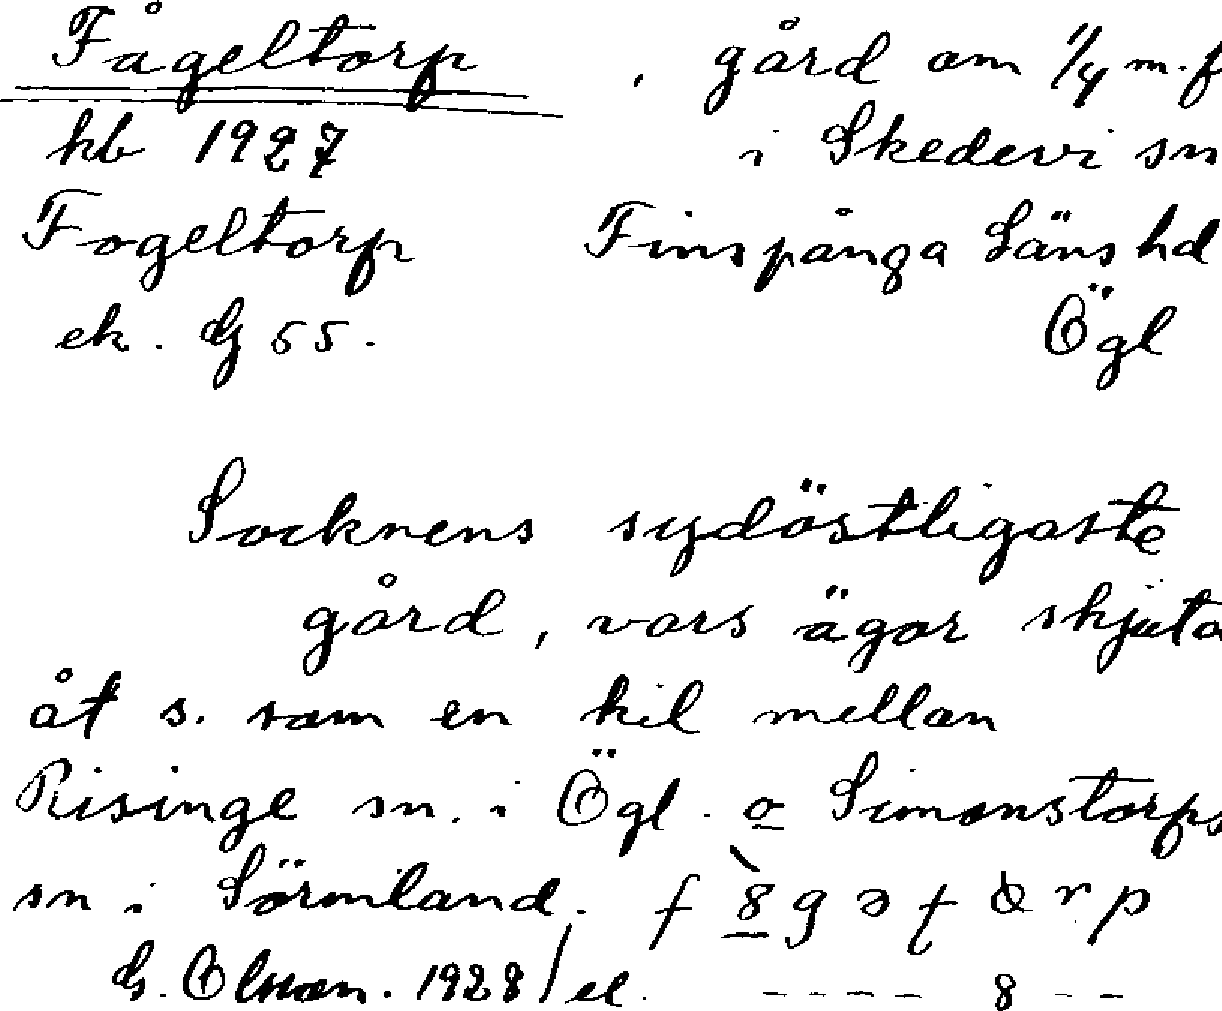 Fågeltorp , gård om 1/4 m.f
kb 1927 i Skedevi sn
Fogeltorp Finspånga Läns hd
ek. G 55. Ögl
Socknens sydöstligaste
gård, vars ägor skjuta
åt s. som en kil mellan
Risinge sn. i Ögl. o Simonstorps
sn i Sörmland.
G. Olsson. 1928 / el. - - - - 8 - -